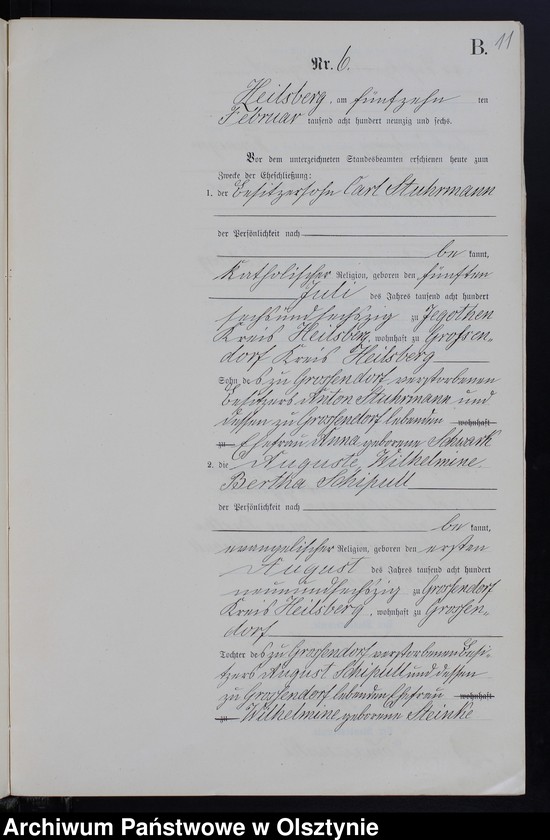 B. 11
Nr. 6.
Heilsberg, am fünfzehn ten
Februar tausend acht hundert neunzig und sechs.
Vor dem unterzeichneten Standesbeamten erschienen heute zum
Zwecke der Eheschließung:
1. der Besitzersohn Carl Stuhrmann
der Persönlichkeit nach
be kannt,
katholischer Religion, geboren den fünften
Juli des Jahres tausend acht hundert
sechsundsechszig zu Jegothen
Kreis Heilsberg, wohnhaft zu Grossen-
dorf Kreis Heilsberg
Sohn des zu Grossendorf verstorbenen
Besitzers Anton Stuhrmann und
dessen zu Grossendorf lebenden wohnhaft
zu Ehefrau Anna geborene Schwark
2. die Auguste, Wilhelmine,
Bertha Schipull
der Persönlichkeit nach
be kannt,
evangelischer Religion, geboren den ersten
August des Jahres tausend acht hundert
neunundsechszig zu Grossendorf
Kreis Heilsberg, wohnhaft zu Grossen-
dorf
Tochter des zu Grossendorf verstorbenen Besi-
tzers August Schipull und dessen
zu Grossendorf lebenden Ehefrau wohnhaft
zu Wilhelmine geborene Steinke
Archiwum Państwowe w Olsztynie